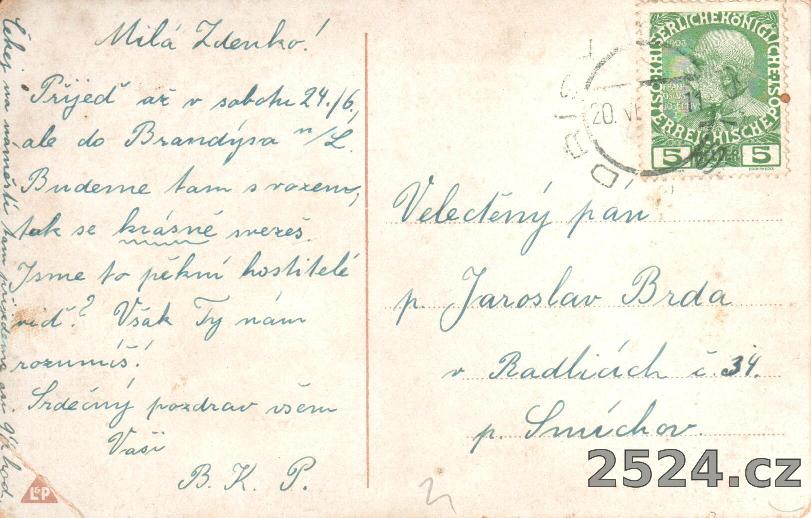 Milá Zdenko!
Přijeď až v sobotu 24./6.,
ale do Brandýsa n/L.
Budeme tam s vozem,
tak se krásně svezeš.
Jsme to pěkní hostitelé
viď? Však Ty nám
rozumíš!
Srdečný pozdrav všem
Vaši
B. K. P.
Čekej na náměstí tam přijedeme
hod.
L&P
Velectěný pán
p. Jaroslav Brda
v Radlicích č. 34.
p. Smíchov.
KAISERLICHE KÖNIGLICHE
ÖSTERREICHISCHE POST
5 5
20. VI
11
2524.cz